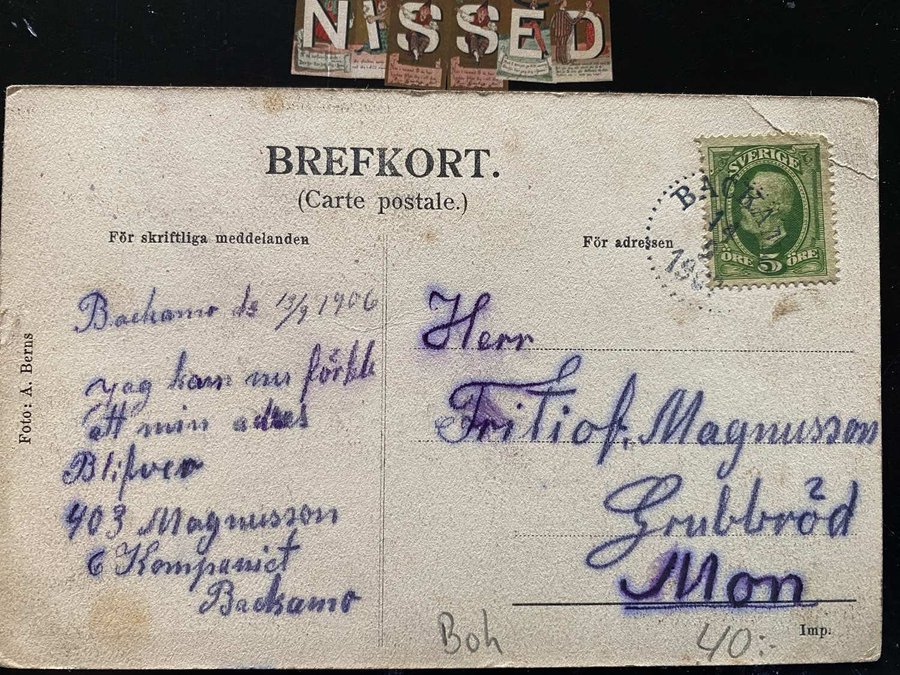 NISSED
BREFKORT.
(Carte postale.)
För skriftliga meddelanden
För adressen
SVERIGE
5
ÖRE ÖRE
BACKA
Foto: A. Berns
Backamo ds 13/9 1906
Jag kan nu
att min adres
Blifver
403 Magnusson
6 Kompaniet
Backamo
Herr
Fritiof. Magnusson
Grubbröd
Mon
Boh
40:-
Imp.